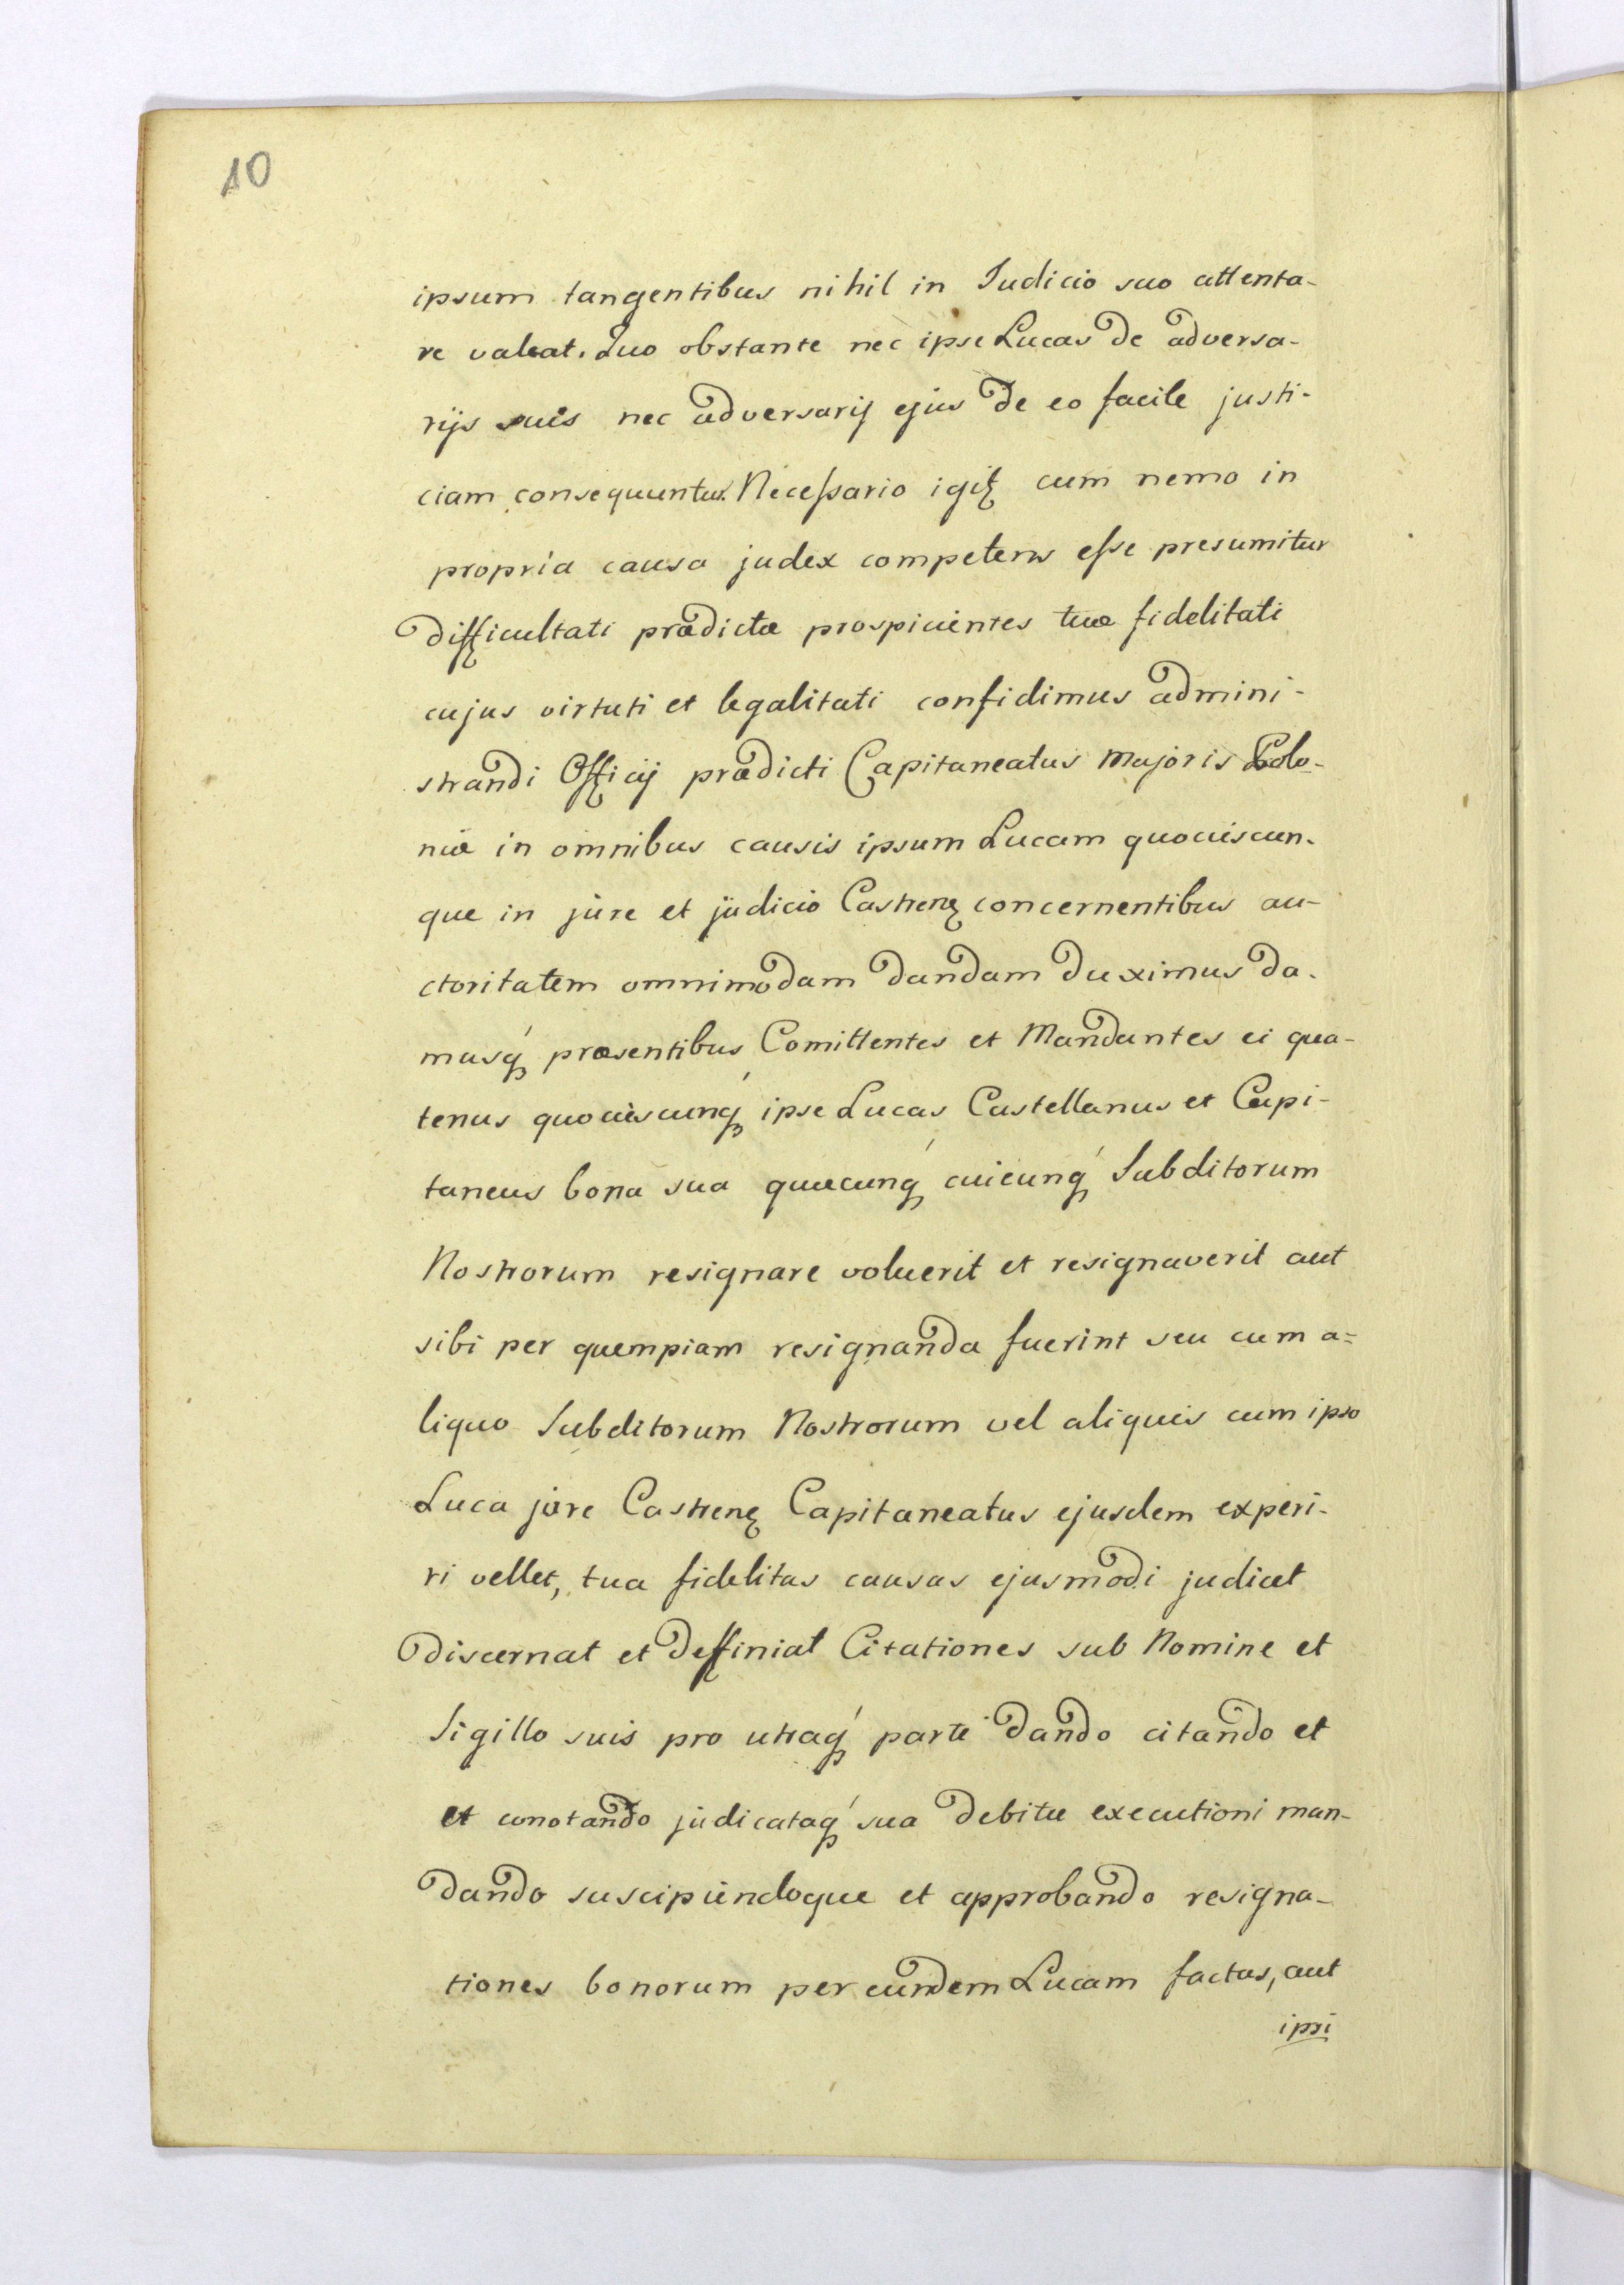 10
ipsum tangentibus nihil in Judicio suo attenta-
re valeat. Quo obstante nec ipse Lucas de adversa-
rijs suis nec adversarij ejus de eo facile justi-
ciam consequuntur. Necessario igitꝫ cum nemo in
propria causa judex competens esse presumitur
difficultati prædictæ prospicientes tuæ fidelitati
cujus virtuti et legalitati confidimus admini-
strandi Officij prædicti Capitaneatus Majoris Polo-
niæ in omnibus causis ipsum Lucam quociescun-
que in jure et judicio Castrenꝫ concernentibus au-
ctoritatem omnimodam dandam duximus da-
musq́ præsentibus Comittentes et Mandantes ei qua-
tenus quociescunq́ ipse Lucas Castellanus et Capi-
taneus bona sua quæcunq́ cuicunq́ Subditorum
Nostrorum resignare voluerit et resignaverit aut
sibi per quempiam resignanda fuerint seu cum a=
liquo Subditorum Nostrorum vel aliquis cum ipso
Luca jure Castrenꝫ Capitaneatus ejusdem experi-
ri vellet, tua fidelitas causas ejusmodi judicet
discernat et deffiniat Citationes sub Nomine et
Sigillo suis pro utraq́ parte dando citando et
et conotando judicataq́ sua debitæ executioni man-
dando suscipiendoque et approbando resigna-
tiones bonorum per eundem Lucam factas, aut
ipsi